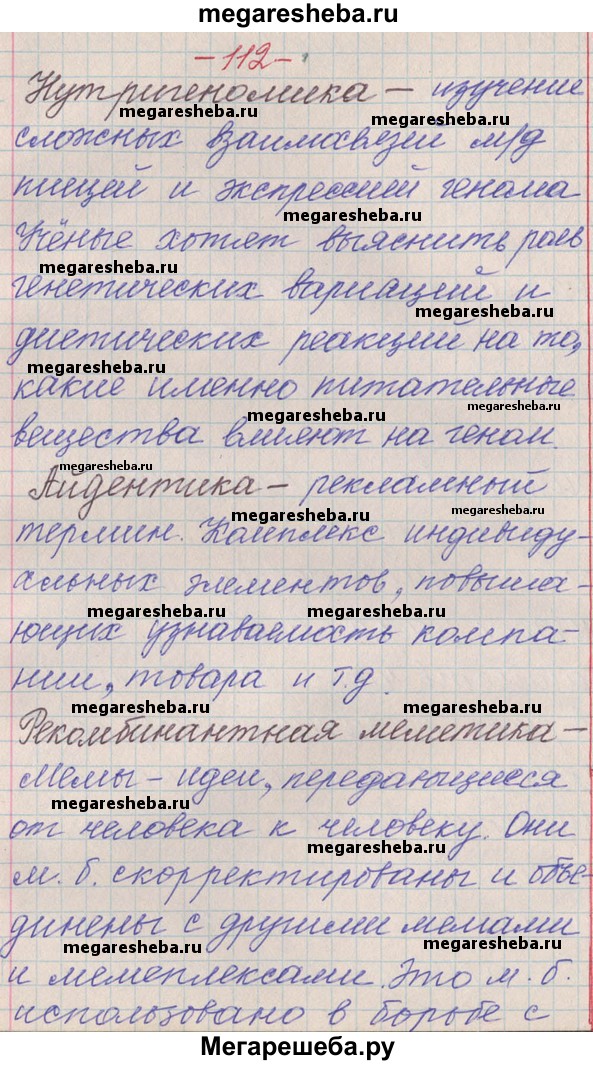 megaresheba.ru
-112-
Нутригеномика – изучение
megaresheba.ru
megaresheba.ru
сложных взаимосвязей м/д
пищей и экспрессией генома
megaresheba.ru
Учёные хотят выяснить роль
megaresheba.ru
генетических вариаций и
megaresheba.ru
диетических реакций на то,
megaresheba.ru
какие именно питательные
megaresheba.ru
megaresheba.ru
вещества влияют на геном.
megaresheba.ru
Айдентика – рекламный
megaresheba.ru
megaresheba.ru
термин. Комплекс индивиду-
альных элементов, повыша-
megaresheba.ru
megaresheba.ru
ющих узнаваемость компа-
нии, товара и т.д.
megaresheba.ru
megaresheba.ru
Рекомбинантная меметика –
Мемы – идеи, передающиеся
megaresheba.ru
от человека к человеку. Они
megaresheba.ru
м. б. скорректированы и объе-
динены с другими мемами
megaresheba.ru
megaresheba.ru
и мемеплексами. Это м. б.
использовано в борьбе с
Мегарешеба.ру